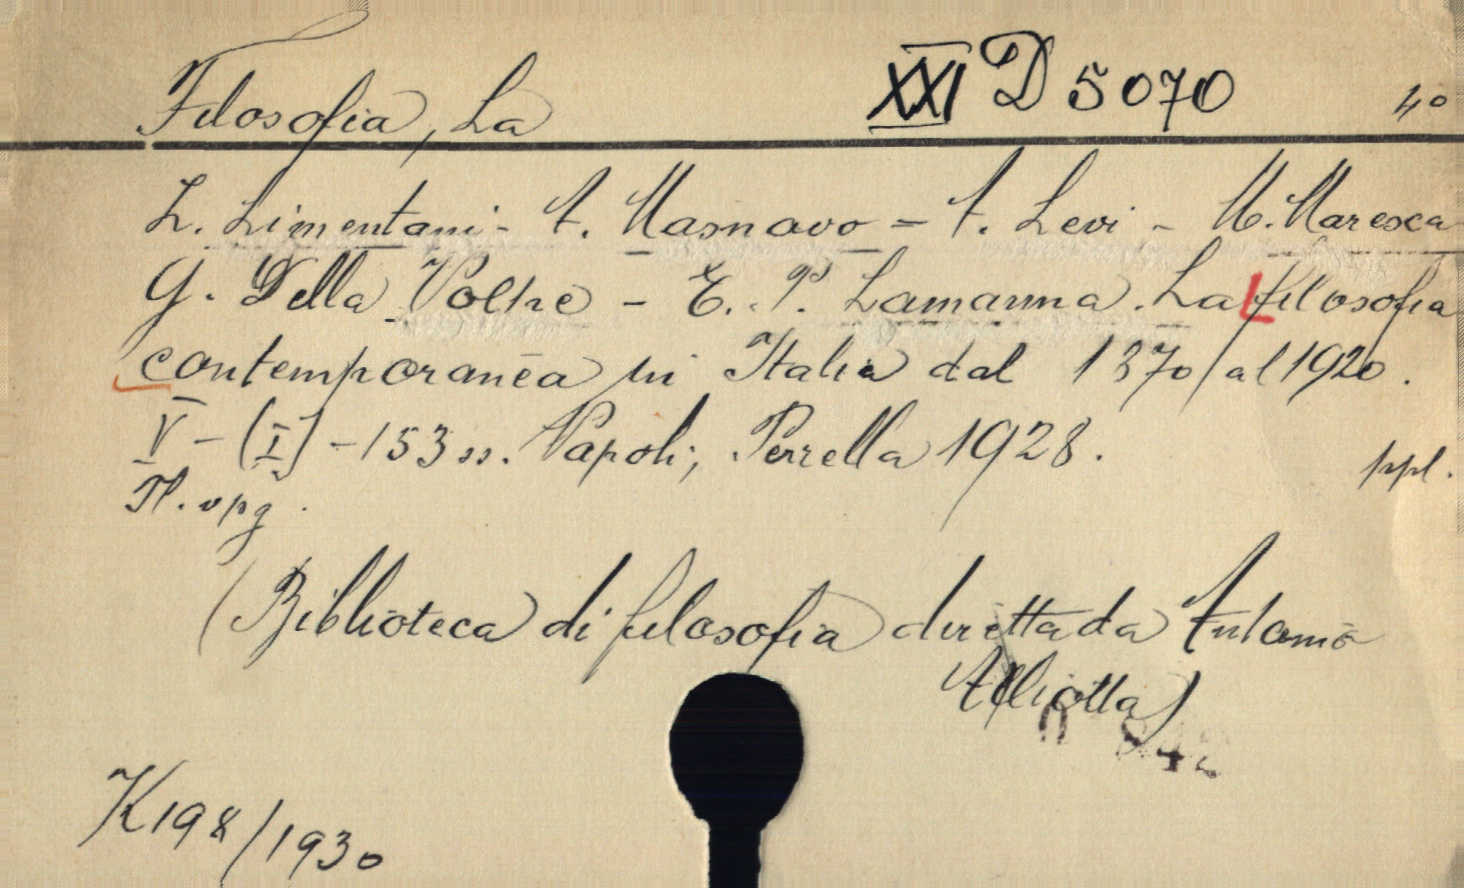 Filosofia, La
XXI D 5070
4°
L. Limentani - A. Masnovo - A. Levi - M. Maresca
G. Della Voltre - E. P. Lamanna. La filosofia
contemporanea in Italia dal 1870 al 1920.
V - (I) - 153 ss. Napoli, Perrella 1928.
ppl.
(Biblioteca di filosofia diretta da Antonio
Alliotta)
K198/1930